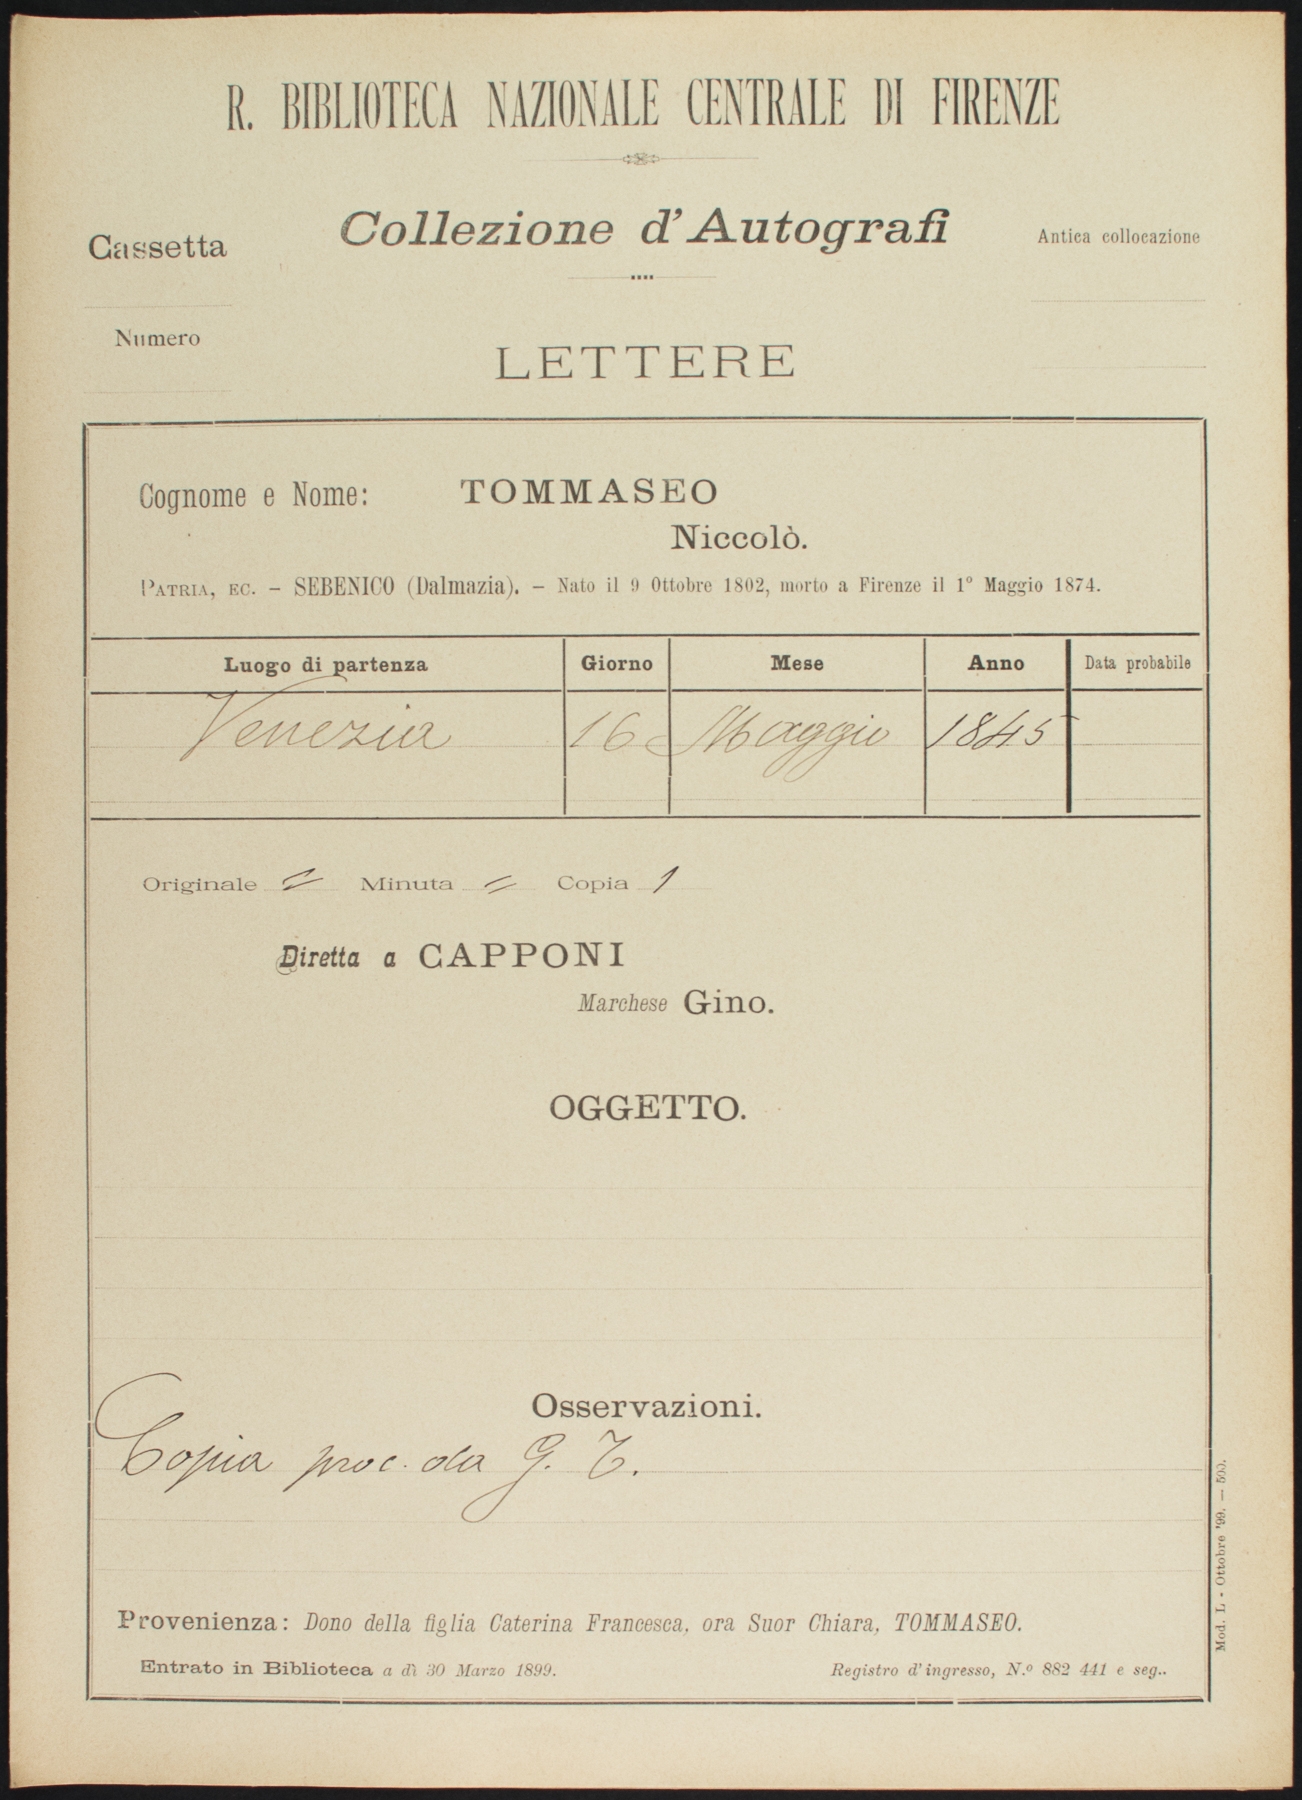 R. BIBLIOTECA NAZIONALE CENTRALE DI FIRENZE
Collezione d'Autografi
Cassetta
Antica collocazione
Numero
LETTERE
Cognome e Nome: TOMMASEO
Niccolò.
PATRIA, EC. – SEBENICO (Dalmazia). – Nato il 9 Ottobre 1802, morto a Firenze il 1º Maggio 1874.
Luogo di partenza Giorno Mese Anno Data probabile
Venezia 16 Maggio 1845
Originale = Minuta = Copia 1
Diretta a CAPPONI
Marchese Gino.
OGGETTO.
Osservazioni.
Copia proc. da G. T.
Provenienza: Dono della figlia Caterina Francesca, ora Suor Chiara, TOMMASEO.
Entrato in Biblioteca a dì 30 Marzo 1899. Registro d'ingresso, N.º 882 441 e seg..
Mod. L - Ottobre '99. — 500.